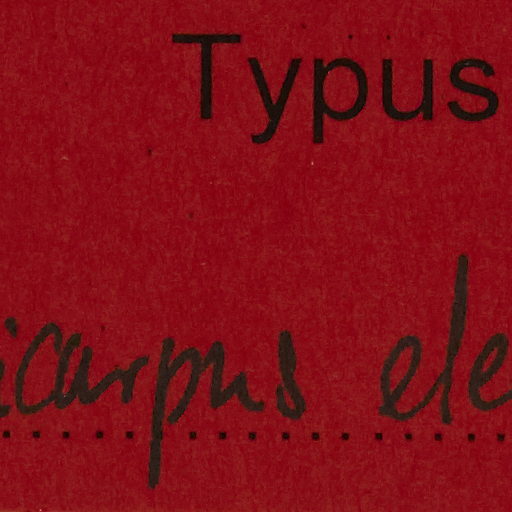 Typus
icarpus ele